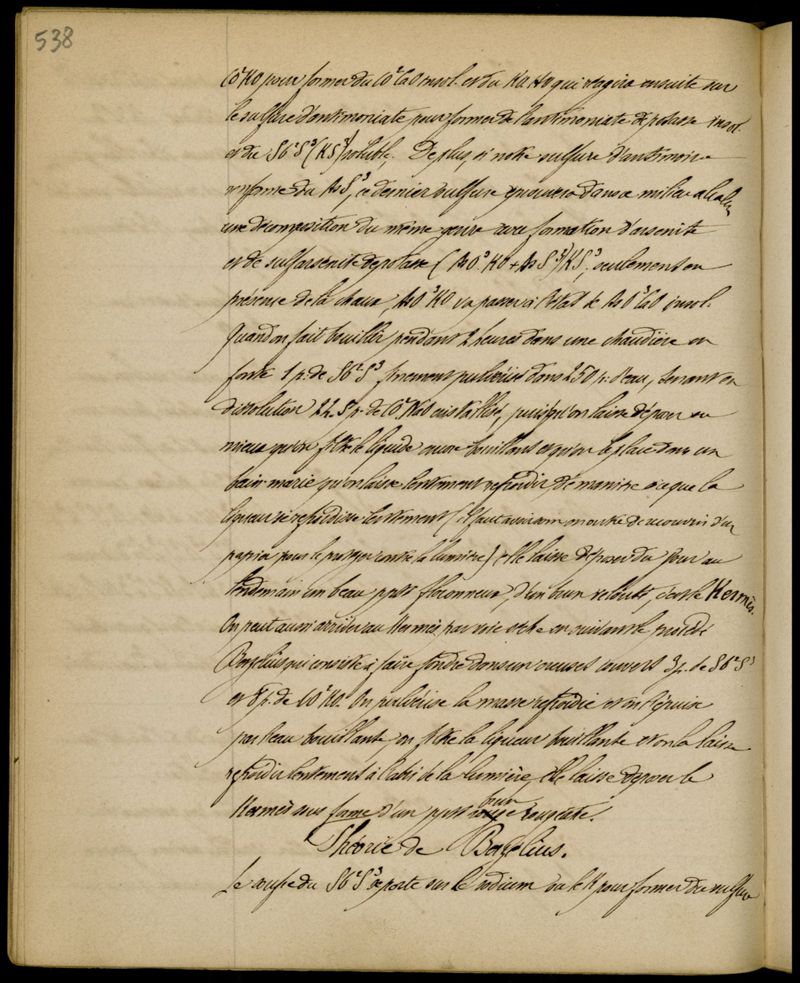 538
CO²KO pour former du CO²CaO insol. et du KO.HO qui réagira ensuite sur
le sulfure d'antimoniate pour former de l'antimoniate de potasse insol.
et du Sb²S³(KS)³ soluble. De plus, si notre sulfure d'antimoine
renferme du AsS³, ce dernier sulfure éprouvera dans ce milieu alcalin
une décomposition du même genre avec formation d'arsenite
et de sulfarsénite de potasse (AsO³KO + AsS³)KS³, seulement en
présence de la chaux, AsO³KO va passer à l'état de AsO³CaO insol.
Quand on fait bouillir pendant 2 heures dans une chaudière en
fonte 1 p. de Sb²S³ finement pulvérisé dans 250 p. d'eau, tenant en
dissolution 22.5 p. de CO²NaO cristallisé, puis qu'on laisse déposer ou
mieux qu'on filtre le liquide encore bouillant et qu'on le place dans un
bain marie qu'on laisse lentement refroidir de manière à ce que la
liqueur se refroidisse lentement (il faut avoir soin en outre de recouvrir d'un
papier pour le protéger contre la lumière) elle laisse déposer du jour au
lendemain un beau ppté floconneux, d'un brun velouté, c'est le Kermès.
On peut aussi arriver au Kermès par voie sèche en suivant le procédé
Berzélius qui consiste à faire fondre dans un creuset couvert 3 p. de Sb²S³
et 8 p. de CO²KO. On pulvérise la masse refroidie et on l'épuise
par l'eau bouillante on filtre la liqueur bouillante et on la laisse
refroidir lentement à l'abri de la lumière, elle laisse déposer le
Kermès sous forme d'un ppté brun rougeâtre.
Théorie de Berzélius.
Le soufre du Sb²S³ se porte sur le sodium ou le K pour former du sulfure